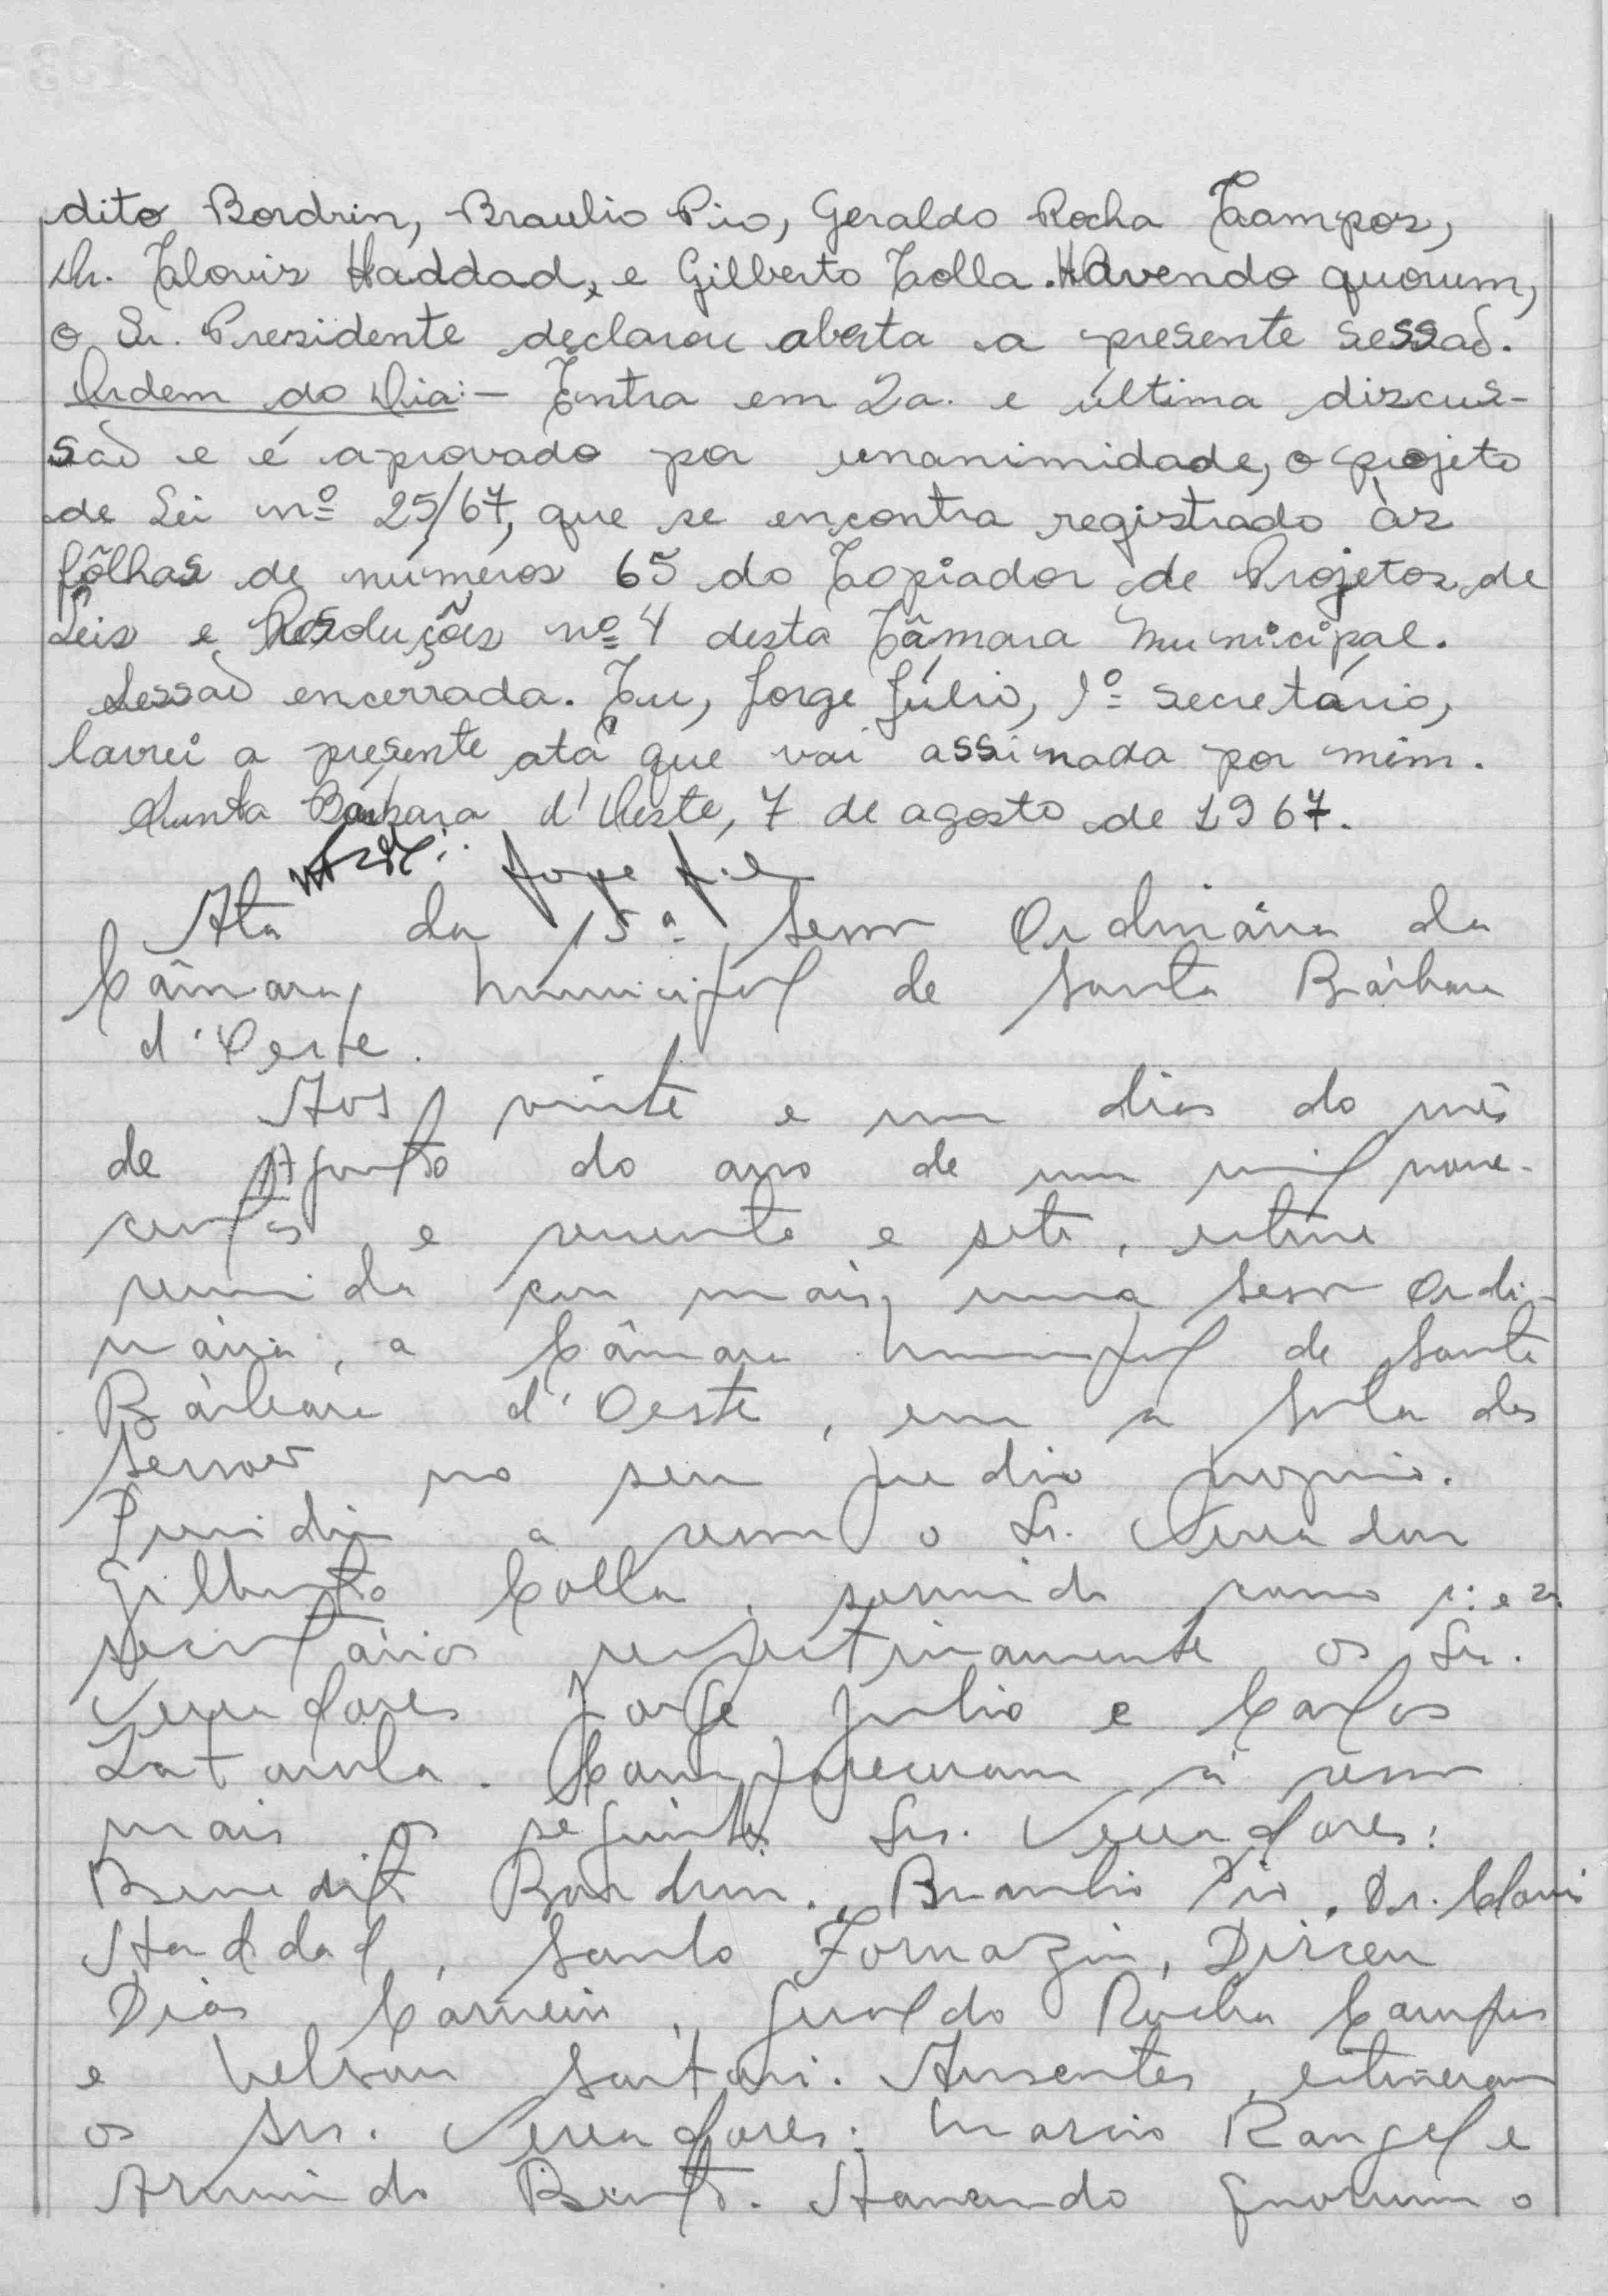 dito Bordrin, Braulio Pio, Geraldo Rocha Campos,
Dr. Clovis Haddad, e Gilberto Colla. Havendo quorum,
o Sr. Presidente declarou aberta a presente sessão.
Ordem do Dia:- Entra em 2a. e última discus-
são e é aprovado por unanimidade, o projeto
de Lei nº 25/67, que se encontra registrado às
fôlhas de números 65 do Copiador de Projetos de
Leis e Resoluções nº 4 desta Câmara Municipal.
Sessão encerrada. Eu, Jorge Júlio, 1º Secretário,
lavrei a presente ata que vai assinada por mim.
Santa Bárbara d'Oeste, 7 de agosto de 1967.
Ata da 15ª Sessão Ordinária da
Câmara Municipal de Santa Bárbara
d'Oeste.
Aos vinte e um dias do mês
de Agosto do ano de um mil nove-
centos e sessenta e sete, esteve
reunida em mais uma Sessão Ordi-
nária, a Câmara Municipal de Santa
Bárbara d'Oeste, em a Sala das
Sessões no seu predio proprio.
Presidiu a sessão o Sr. Vereador
Gilberto Colla, servindo como 1º e 2º
secretários respectivamente os Srs.
Vereadores Jorge Julio e Carlos
Compareceram à sessão
mais os seguintes Srs. Vereadores:
Benedito Bordrin, Braulio Pio, Dr. Clovis
Haddad, Santo Fornazin, Dirceu
Dias Carneiro, Geraldo Rocha Campos
e Nelson Sartori. Ausentes, estiveram
os Srs. Vereadores: Marcio Rangel e
Armindo Bento. Havendo quorum o